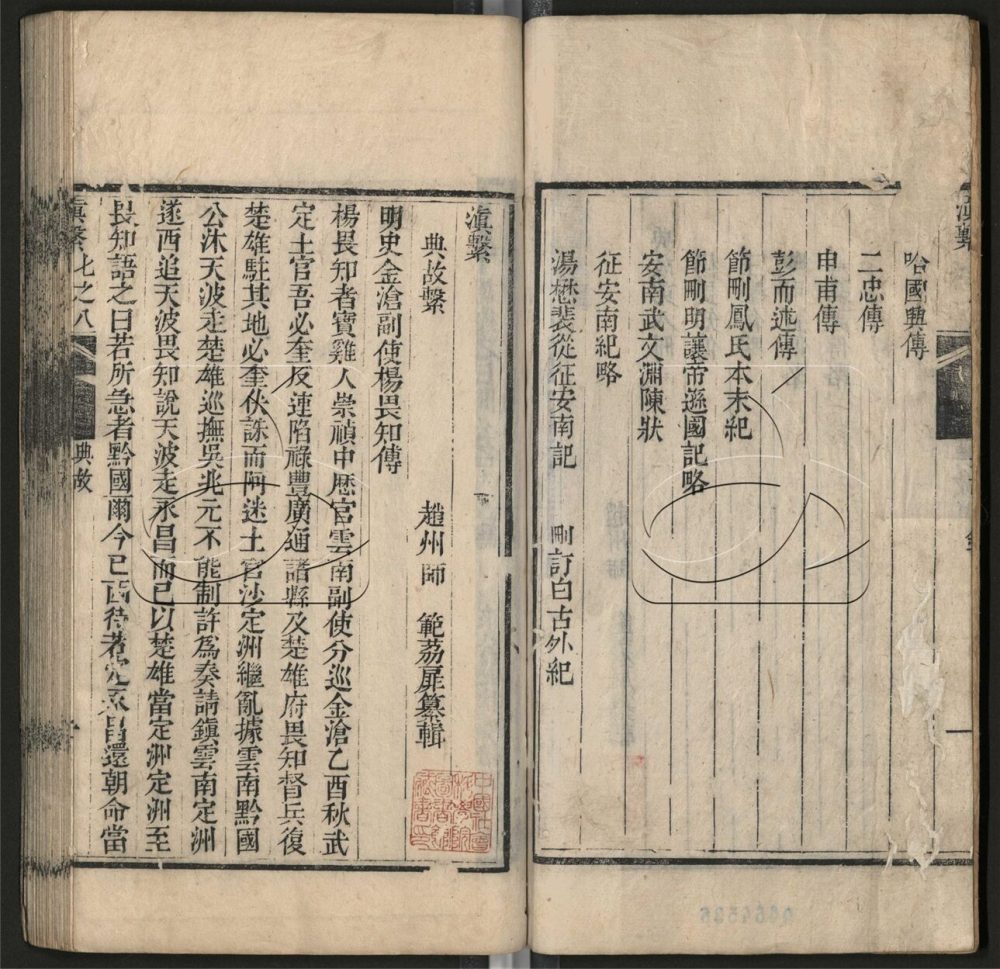 滇繫
哈國興傳
二忠傳
申甫傳
彭而述傳
節刪鳳氏本末紀
節刪明讓帝遜國記略
安南武文淵陳狀
征安南紀略
湯懋裴從征安南記 刪訂白古外紀
滇繫
典故繫
趙州師 範荔扉纂輯
明史金滄副使楊畏知傳
楊畏知者寶雞人崇禎中歷官雲南副使分巡金滄乙酉秋武
定土官吾必奎反連陷祿豐廣通諸縣及楚雄府畏知督兵復
楚雄駐其地必奎伏誅而阿迷土官沙定洲繼亂據雲南黔國
公沐天波走楚雄巡撫吳兆元不能制許為奏請鎮雲南定洲
遂西追天波畏知說天波走永昌而已以楚雄當定洲定洲至
畏知語之曰若所急者黔國爾今已西待若定永昌還朝命當
滇繫 七之八 典故